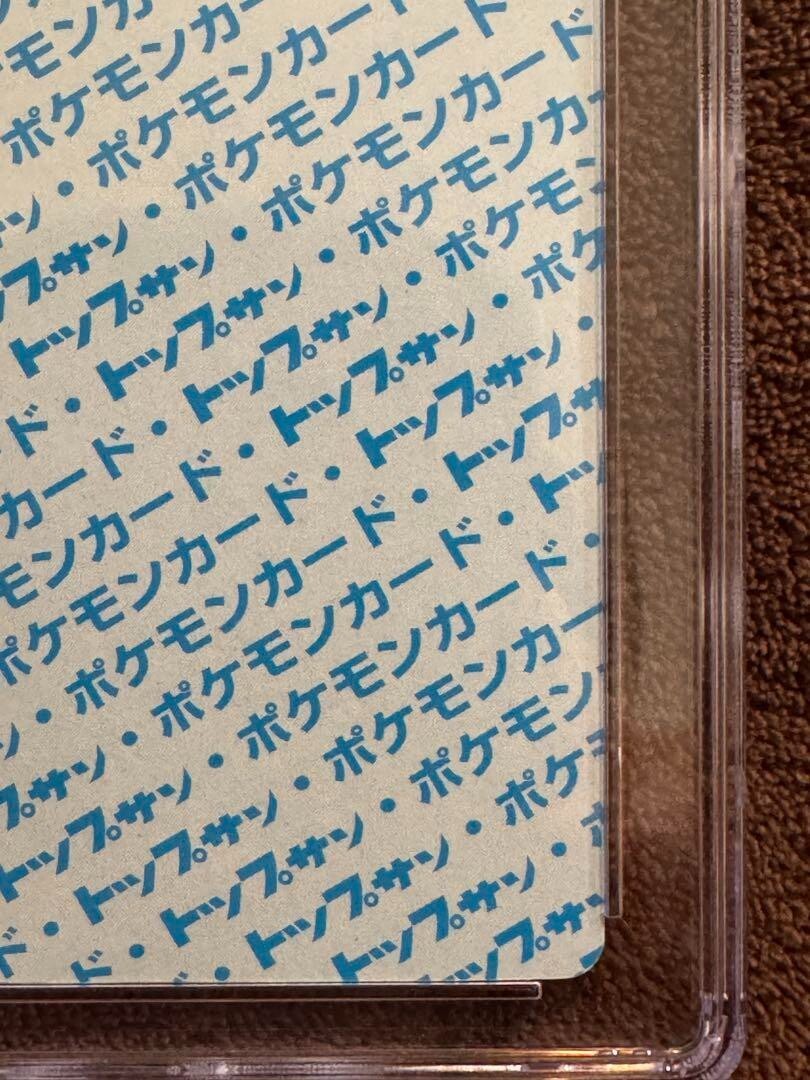 モンカ
ポケモンカー
ン・ポケモンカード
プサン・ポケモンカード
トップサン・ポケモンカード
ド・トップサン・ポケモンカ
カード・トップサン・ポケモン
モンカード・トップサン・ポケ
ポケモンカード・トップサン・
ン・ポケモンカード・トップサ
プサン・ポケモンカード・トッ
トップサン・ポケモンカード・
ド・トップサン・ポケモンカー
ド・トップサン・ポケモン
・トップサン・ポケ
トップサン・
ップサ